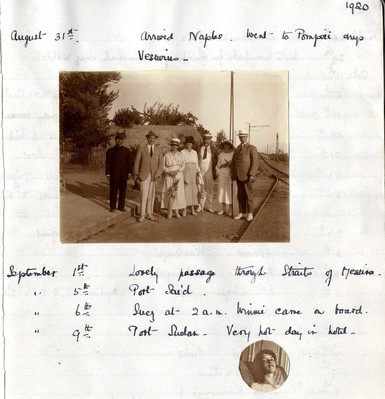 1920
August 31st. Arrived Naples. Went to Pompeii &
Vesuvius -
September 1st Lovely passage through Straits of Messina.
" 5th Port Said.
" 6th Suez at 2 a.m. Winnie came on board.
" 9th Port Sudan. Very hot day in hotel.